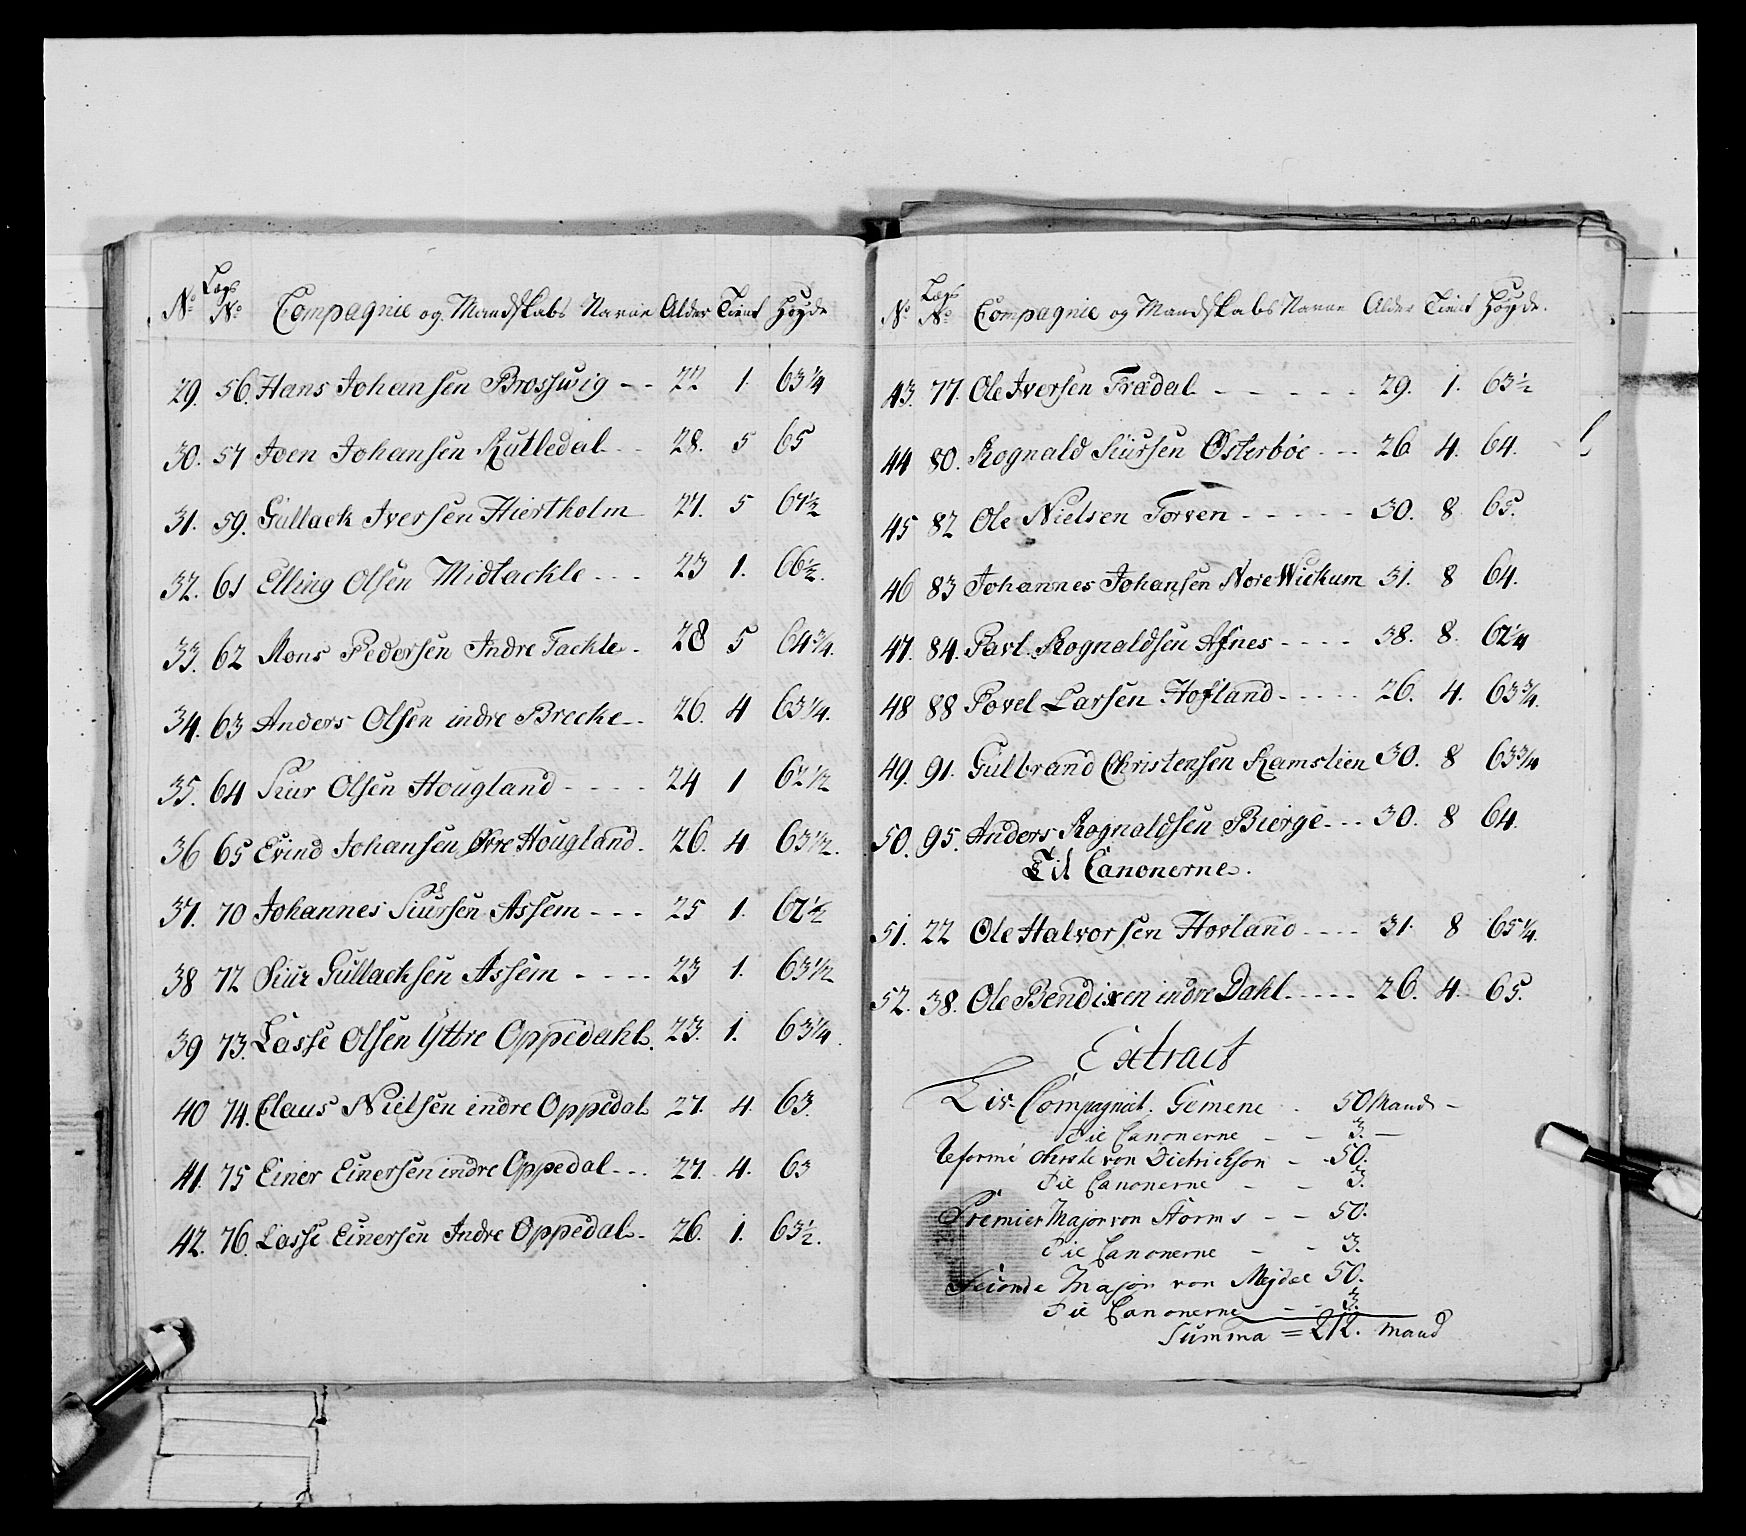 No Lægs No Compagnie og Mandskabs Navne Alder Tient Høyde
29. 56. Hans Johansen Brosswig -- 22 1. 63 1/4
30. 57 Joen Johansen Rutledal -- 28. 5 65
31. 59. Gullack Iversen Hiertholm 27. 5 67 1/2
32. 61 Elling Olsen Midtackle --- 23 1. 66 1/2.
33. 62 Mons Pedersen Indre Tackle - 28 5 64 3/4.
34. 63 Anders Olsen indre Brecke -- 26. 4 63 1/4.
35. 64 Siur Olsen Hougland ---- 24 1 62 1/2
36 65 Evind Johansen Øvre Hougland. 26. 4 63 1/2.
37. 70 Johannes Siursen Assem --- 25 1. 62 1/2
38 72 Siur Gullacksen Assem ---- 23 1. 63 1/2
39 73. Lasse Olsen Yttre Oppedahl. 23. 1. 63 1/4.
40 74. Claus Nielsen indre Oppedal 27. 4. 63.
41. 75 Einer Einersen indre Oppedal --- 27. 4. 63
42. 76. Lasse Einersen Indre Oppedal - 26. 1. 63 1/2.
No Lægs No Compagnie og Mandskabs Navne Alder Tient Høyde.
43. 77. Ole Iversen Frædal ------ 29. 1. 63 1/2
44 80. Rognald Siursen Østerbøe --- 26. 4. 64.
45 82 Ole Nielsen Torven ----- 30. 8. 65.
46 83 Johannes Johansen Nore Wickum 31. 8 64.
47. 84. Parl Rognaldsen Afnes ---- 38. 8. 62 1/4
48 88 Povel Larsen Hofland ----- 26. 4. 63 3/4.
49. 91. Gulbrand Christensen Ramslien 30. 8 63 3/4
50. 95. Anders Rognaldsen Bierge --- 30. 8 64.
Til Canonerne.
51. 22 Ole Halvorsen Hovland ---- 31. 8 65 1/4.
52. 38. Ole Bendixen indre Dahl ----- 26. 4. 65.
Extract
Liv-Compagniet. Gemene . 50 Mand -
Til Canonerne - - 3. -
Reformé von Dietrickson - 50.
Til Canonerne - - 3.
Premier Major von Storm - - 50.
Til Canonerne - - 3.
Seconde Major von Mejdel 50.
Til Canonerne - - 3.
Summa = 212. Mand